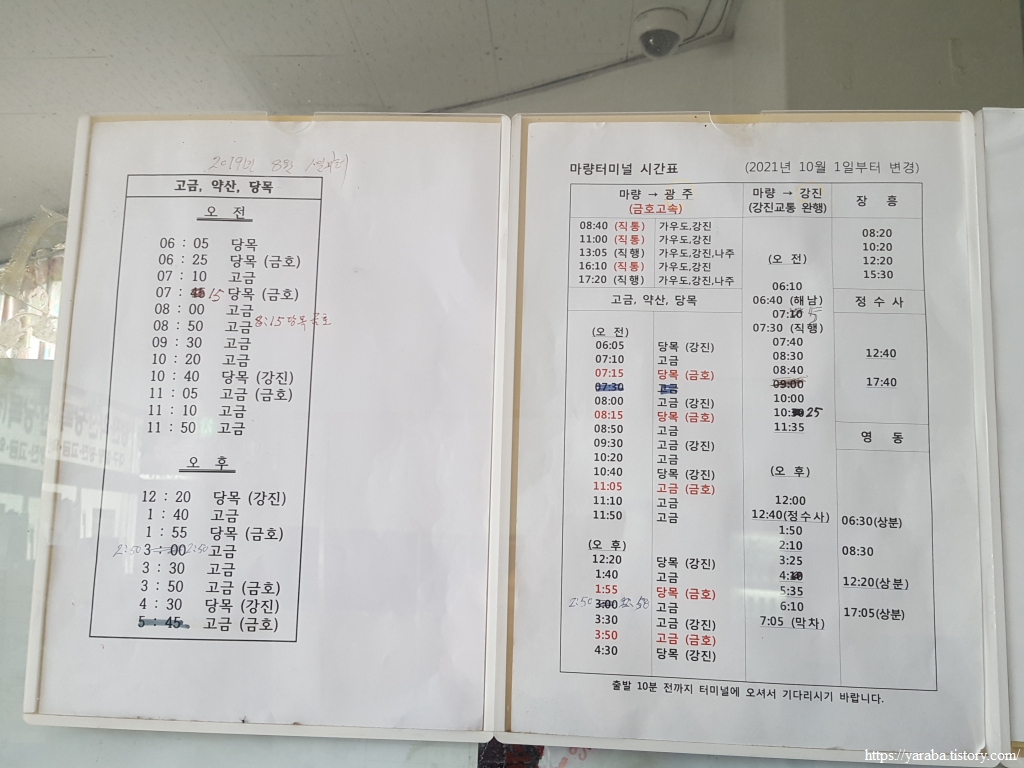 2019년 8월 1일부터
고금, 약산, 당목
오 전
06 : 05 당목
06 : 25 당목 (금호)
07 : 10 고금
07 : 15 당목 (금호)
08 : 00 고금
8:15 당목 금호
08 : 50 고금
09 : 30 고금
10 : 20 고금
10 : 40 당목 (강진)
11 : 05 고금 (금호)
11 : 10 고금
11 : 50 고금
오 후
12 : 20 당목 (강진)
1 : 40 고금
1 : 55 당목 (금호)
2:50 3 : 00 2:50 고금
3 : 30 고금
3 : 50 고금 (금호)
4 : 30 당목 (강진)
5 : 45 고금 (금호)
마량터미널 시간표 (2021년 10월 1일부터 변경)
마량 → 광 주
(금호고속)
08:40 (직통) 가우도,강진
11:00 (직통) 가우도,강진
13:05 (직행) 가우도,강진,나주
16:10 (직통) 가우도,강진
17:20 (직행) 가우도,강진,나주
고금, 약산, 당목
(오 전)
06:05 당목 (강진)
07:10 고금
07:15 당목 (금호)
07:30 고금
08:00 고금 (강진)
08:15 당목 (금호)
08:50 고금
09:30 고금 (강진)
10:20 고금
10:40 당목 (강진)
11:05 고금 (금호)
11:10 고금
11:50 고금
(오 후)
12:20 당목 (강진)
1:40 고금
1:55 당목 (금호)
2:50 3:00 2:50 고금
3:30 고금 (강진)
3:50 고금 (금호)
4:30 당목 (강진)
마량 → 강진
(강진교통 완행)
(오 전)
06:10
06:40 (해남)
07:10
07:30 (직행)
07:40
08:30
08:40
09:00
10:00
10:30 25
11:35
(오 후)
12:00
12:40(정수사)
1:50
2:10
3:25
5:35
6:10
7:05 (막차)
장 흥
08:20
10:20
12:20
15:30
정 수 사
12:40
17:40
영 동
06:30(상분)
08:30
12:20(상분)
17:05(상분)
출발 10분 전까지 터미널에 오셔서 기다리시기 바랍니다.
https://yaraba.tistory.com/